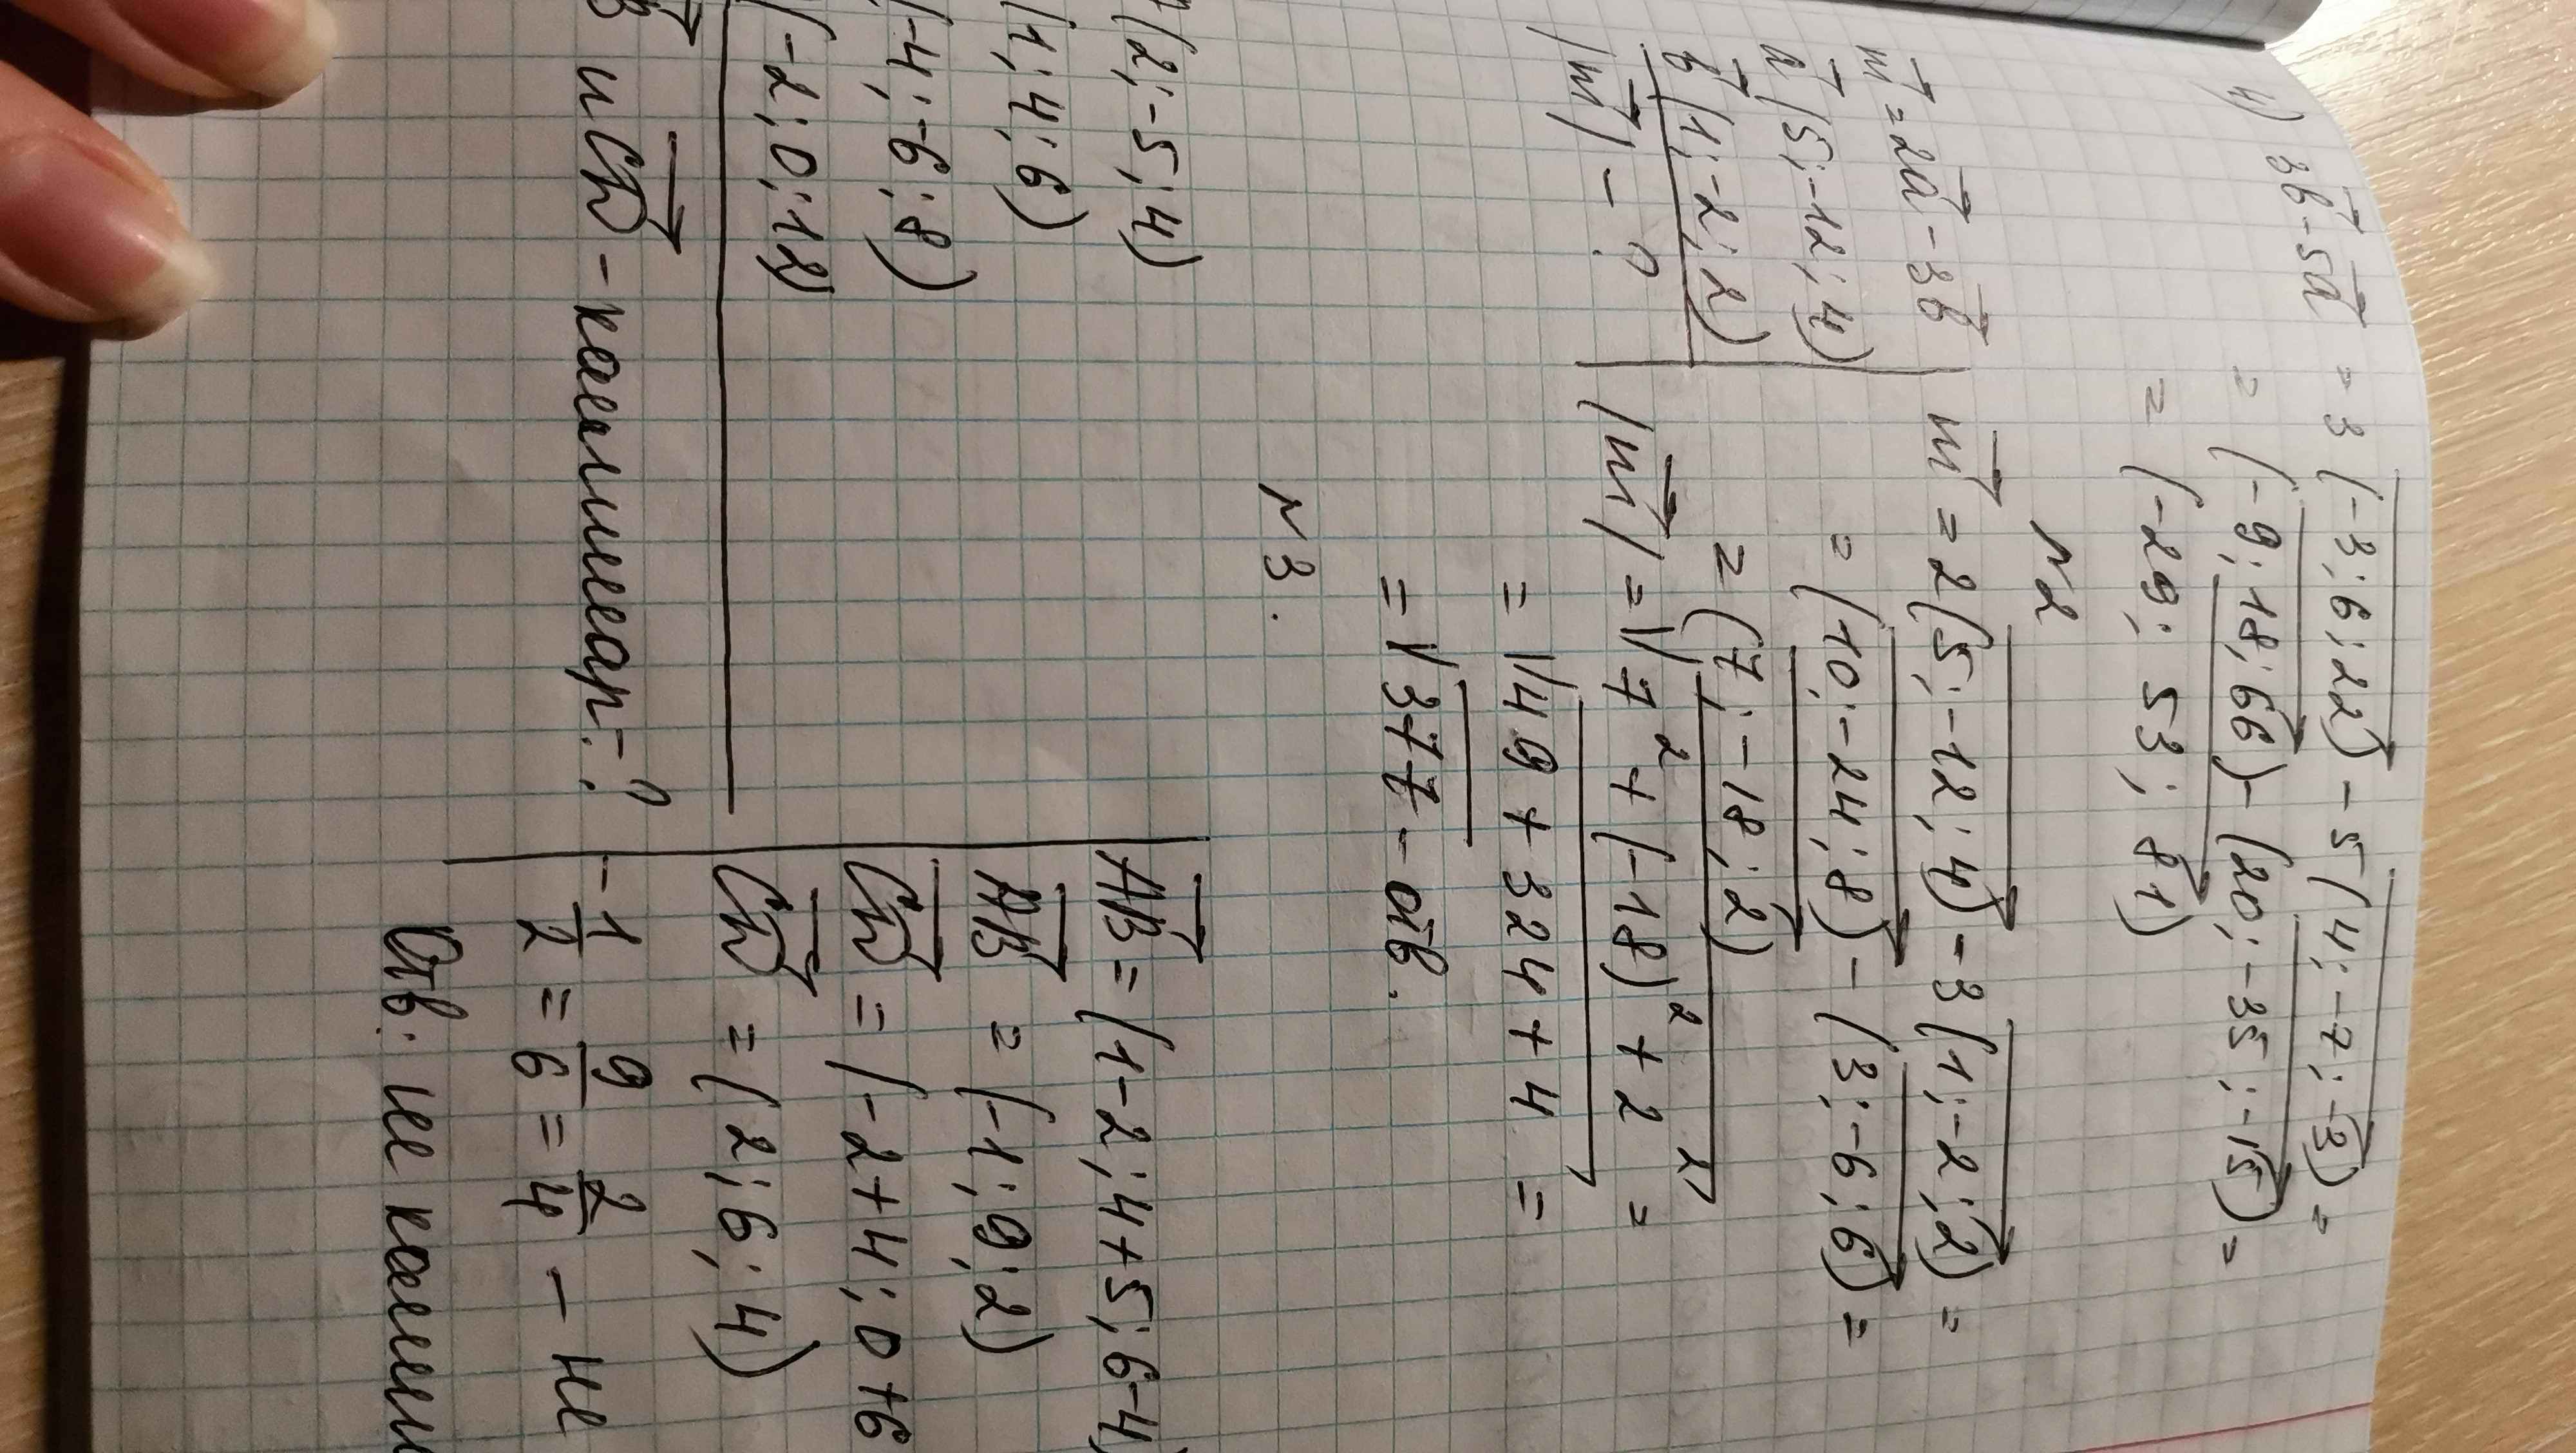 4) 3b⃗ - 5a⃗ = 3(-3; 6; 22) - 5(4; -7; -3) =
= (-9; 18; 66) - (20; -35; -15) =
= (-29; 53; 81)
N2
m⃗ = 2a⃗ - 3b⃗
a⃗ (5; -12; 4)
b⃗ (1; -2; 2)
|m⃗| - ?
m⃗ = 2(5; -12; 4) - 3(1; -2; 2) =
= (10; -24; 8) - (3; -6; 6) =
= (7; -18; 2)
|m⃗| = √7² + (-18)² + 2² =
= √49 + 324 + 4 =
= √377 - отв.
N3.
(2; -5; 4)
(1; 4; 6)
(-4; -6; 8)
(-2; 0; 12)
B и CD - коллинеар. - ?
AB = (1-2; 4+5; 6-4)
AB = (-1; 9; 2)
CD = (-2+4; 0+6
CD = (2; 6; 4)
-1/2 = 9/6 = 2/4 - не
Отв: не коллин